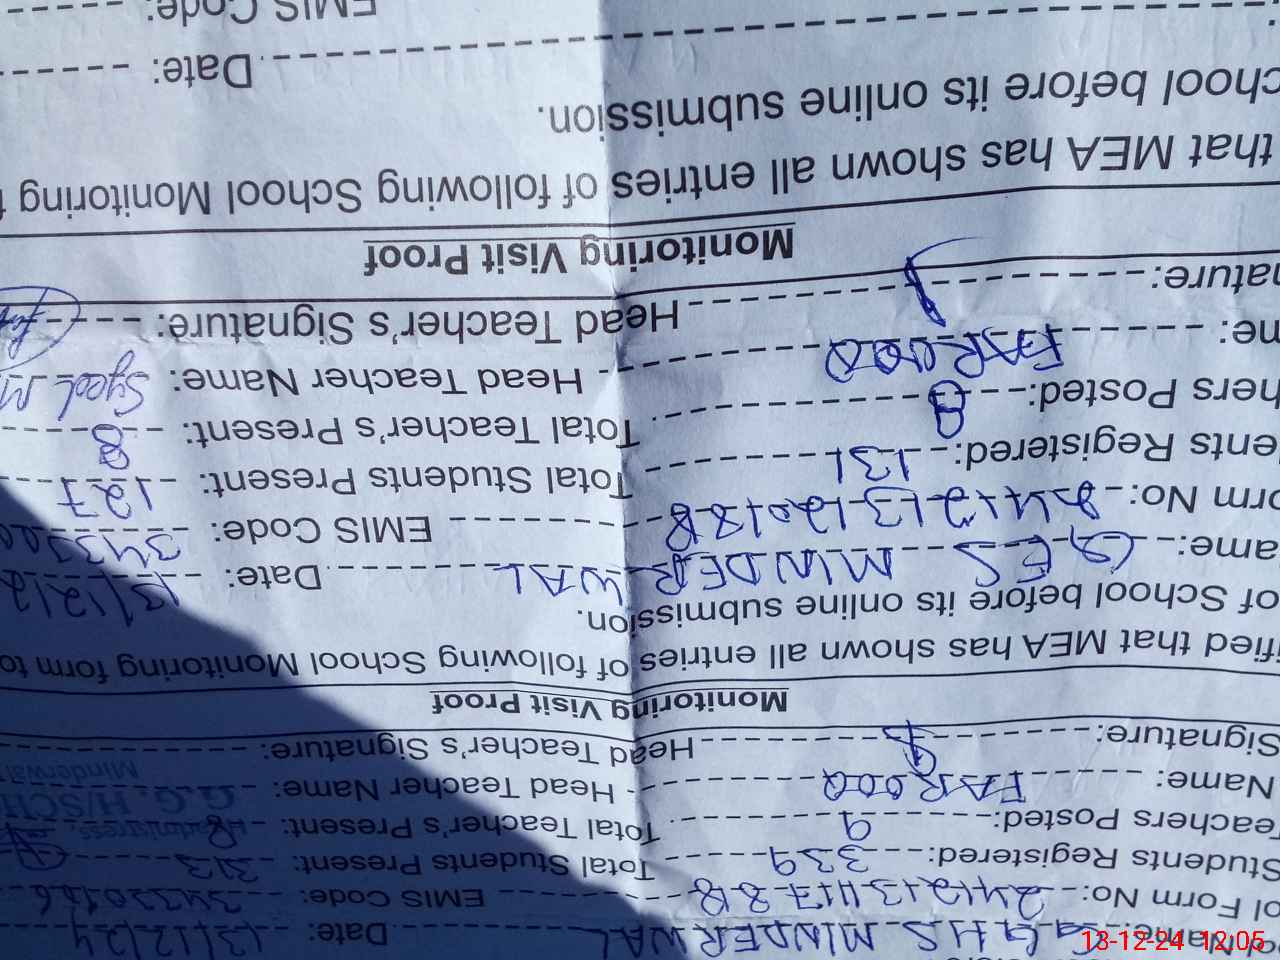 Name: GGHS MINDERWAL Date: 13/12/24
ol Form No: 2412131417818 EMIS Code: 34330166
Students Registered: 339 Total Students Present: 313
Teachers Posted: 9 Total Teacher's Present: 8
Name: FAROOQ Head Teacher Name: G.G.H/SCH
Signature: Head Teacher's Signature: Minderwa
Monitoring Visit Proof
ified that MEA has shown all entries of following School Monitoring form to
of School before its online submission.
ame: GES MINDERWAL Date: 13/12/2
orm No: EMIS Code:
ents Registered: 131 Total Students Present: 127
hers Posted: 8 Total Teacher's Present: 8
me: FAROOQ Head Teacher Name: Syed M
nature: Head Teacher's Signature:
Monitoring Visit Proof
that MEA has shown all entries of following School Monitoring f
chool before its online submission.
: Date:
EMIS Code:
13-12-24 12:05